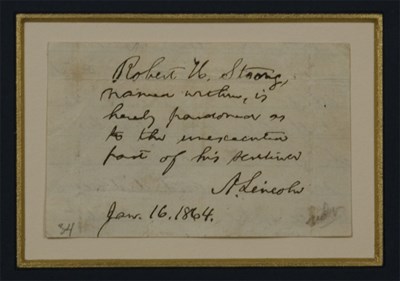 Robert H. Strong,
named within, is
hereby pardoned as
to the unexecuted
part of his sentence
A. Lincoln
Jan. 16. 1864.
34